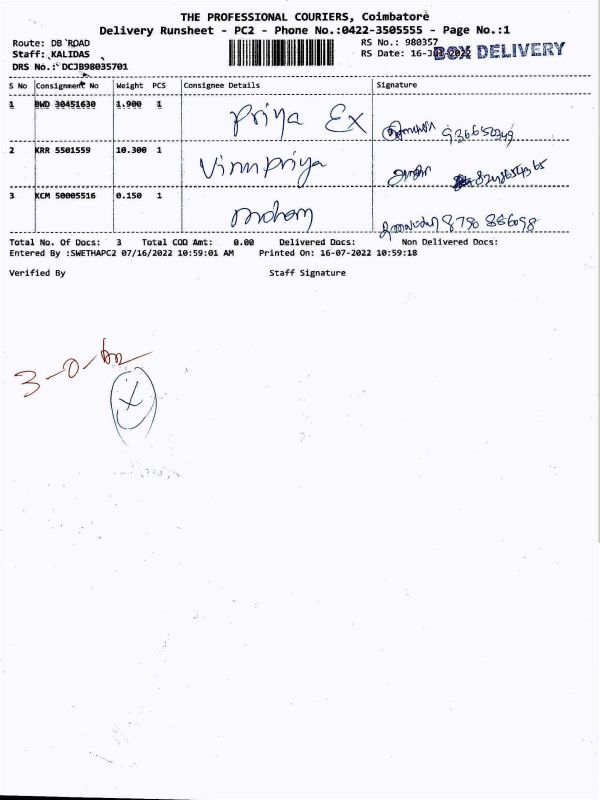 THE PROFESSIONAL COURIERS, Coimbatore
Delivery Runsheet - PC2 - Phone No.:0422-3505555 - Page No.:1
Route: DB ROAD
RS No.: 980357
Staff: KALIDAS
RS Date: 16-JUL-2022 BOX DELIVERY
DRS No.: DCJB98035701
S No Consignment No Weight PCS Consignee Details Signature
1 BWD 30451630 1.900 1 Priya Ex
2 KRR 5501559 10.300 1 Vinnpriya
3 KCM 50005516 0.150 1 mohan
Total No. Of Docs: 3 Total COD Amt: 0.00 Delivered Docs: Non Delivered Docs:
Entered By :SWETHAPC2 07/16/2022 10:59:01 AM Printed On: 16-07-2022 10:59:18
Verified By Staff Signature
3-0-